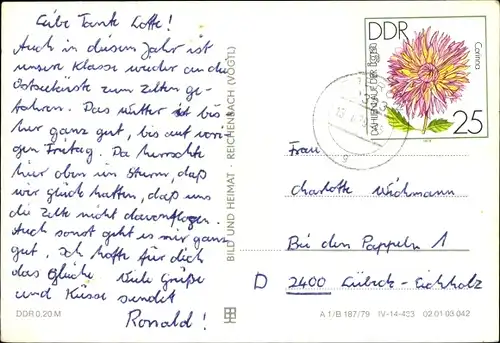 Liebe Tante Lotte!
Auch in diesem Jahr ist
unsere Klasse wieder an die
Ostseeküste zum zelten ge-
fahren. Das Wetter ist bis
her ganz gut, bis auf vori-
gen Freitag. Da herrschte
hier oben ein Sturm, daß
wir glück hatten, daß uns
die Zelte nicht davonflogen.
Auch sonst geht es mir ganz
gut. Ich hoffe für dich
das Gleiche. Viele Grüße
und Küsse sendet
Ronald!
DDR 0,20 M
BILD UND HEIMAT · REICHENBACH (VOGTL)
DDR
Corinna
25
Frau
Charlotte Wichmann
Bei den Pappeln 1
D 2400 Lübeck-Eichholz
A 1/B 187/79 IV-14-483 02 01 03 042